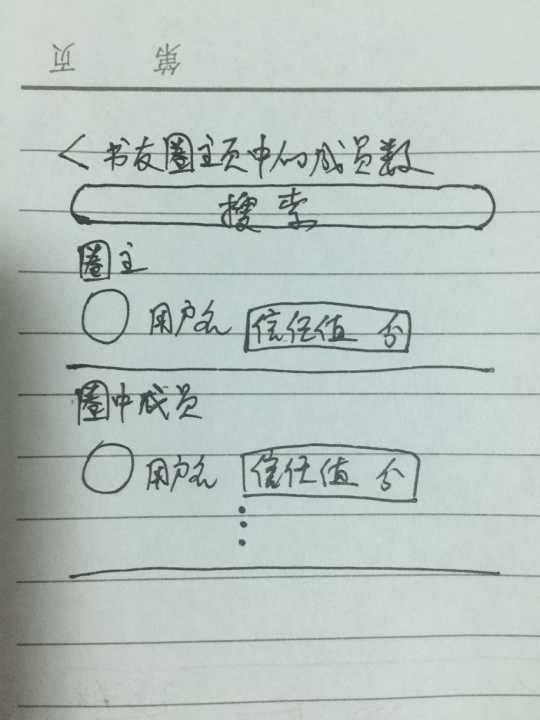 第 页
< 书友圈主页中的成员数
搜索
圈主
用户名 信任值 分
圈中成员
用户名 信任值 分